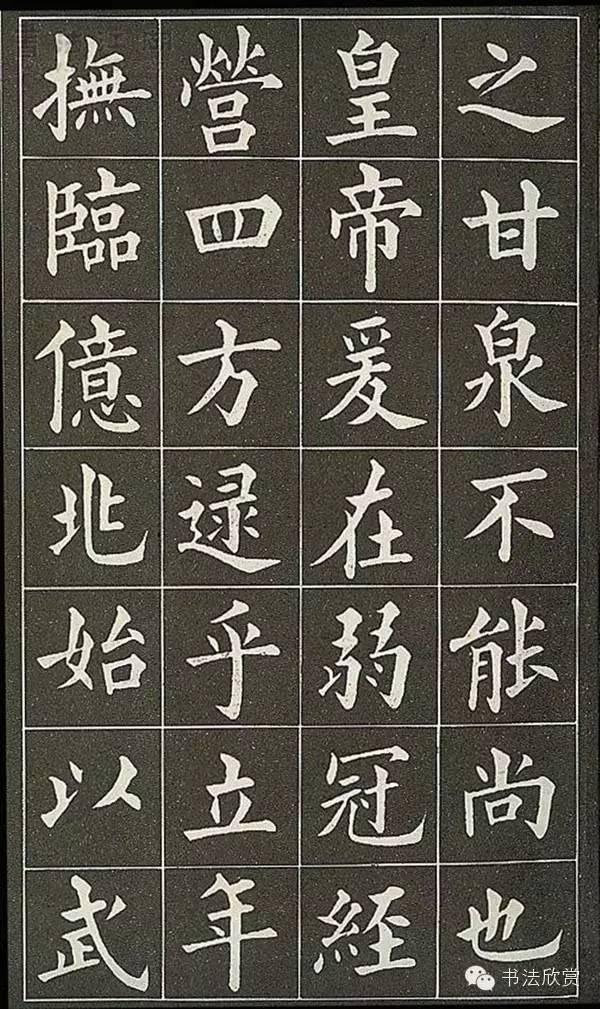 之甘泉不能尚也
皇帝爰在弱冠經
營四方逯乎立年
撫臨億兆始以武
书法欣赏